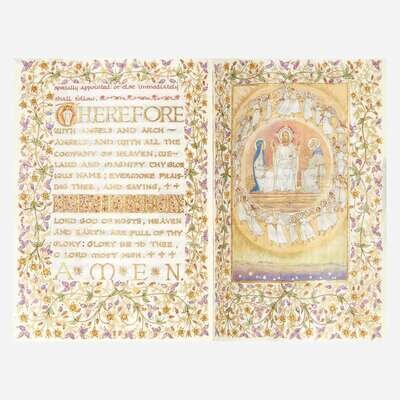 specially appointed or else immediately
shall follow.
THEREFORE
WITH ANGELS AND ARCH
ANGELS, AND WITH ALL THE
COMPANY OF HEAVEN, WE
LAUD AND MAGNIFY THY GLORI
OUS NAME; EVERMORE PRAIS
ING THEE, AND SAYING,
LORD GOD OF HOSTS, HEAVEN
AND EARTH ARE FULL OF THY
GLORY: GLORY BE TO THEE,
O LORD MOST HIGH.
AMEN